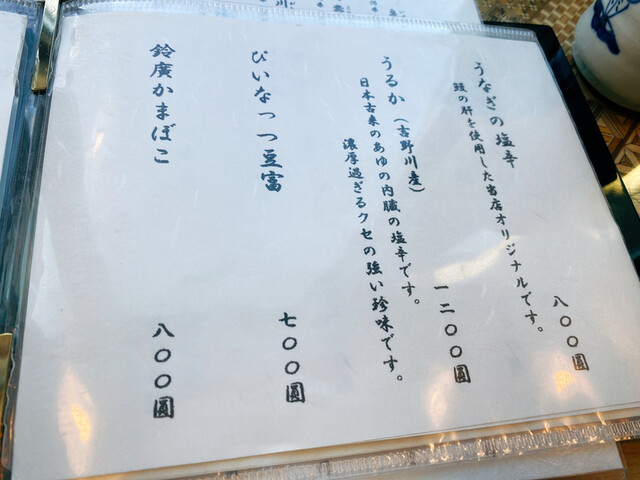 うなぎの塩辛
鰻の肝を使用した当店オリジナルです。
八〇〇圓
うるか（吉野川産）
日本古来のあゆの内臓の塩辛です。
濃厚過ぎるクセの強い珍味です。
一二〇〇圓
ぴいなっつ豆富
七〇〇圓
鈴廣かまぼこ
八〇〇圓